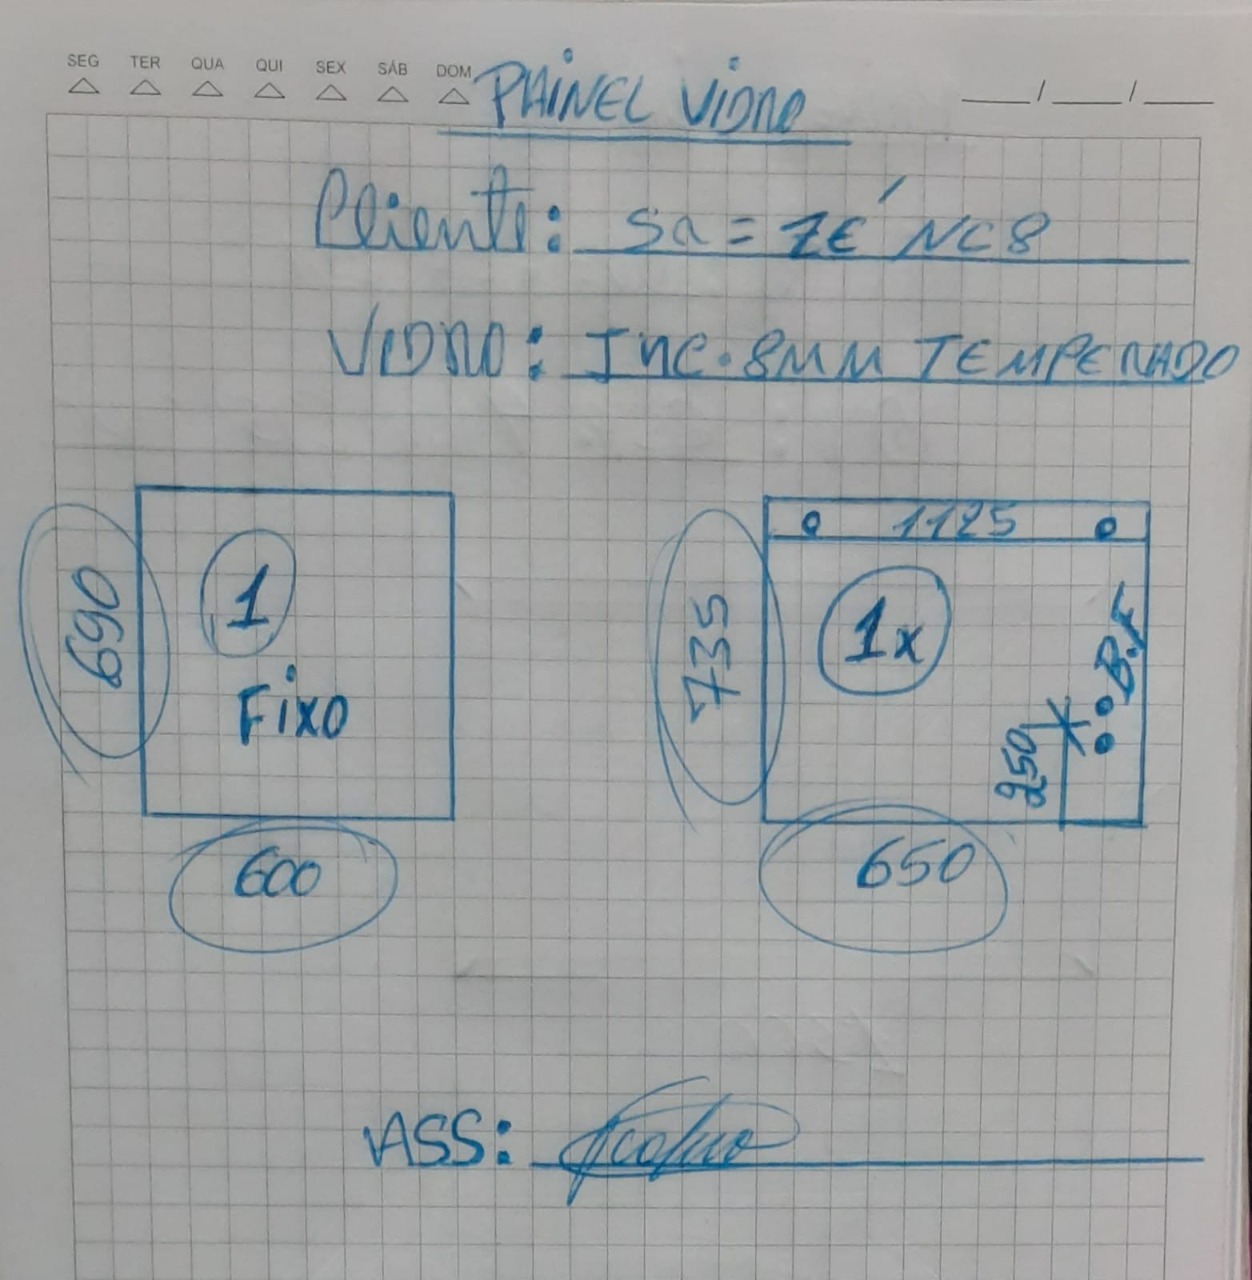 SEG TER QUA QUI SEX SÁB DOM
PAINEL VIDRO
___/___/___
Cliente: Sa = ZÉ NC8
VIDRO: INC. 8MM TEMPERADO
690
1
Fixo
600
1125
735
1x
B.F
250
650
ASS: